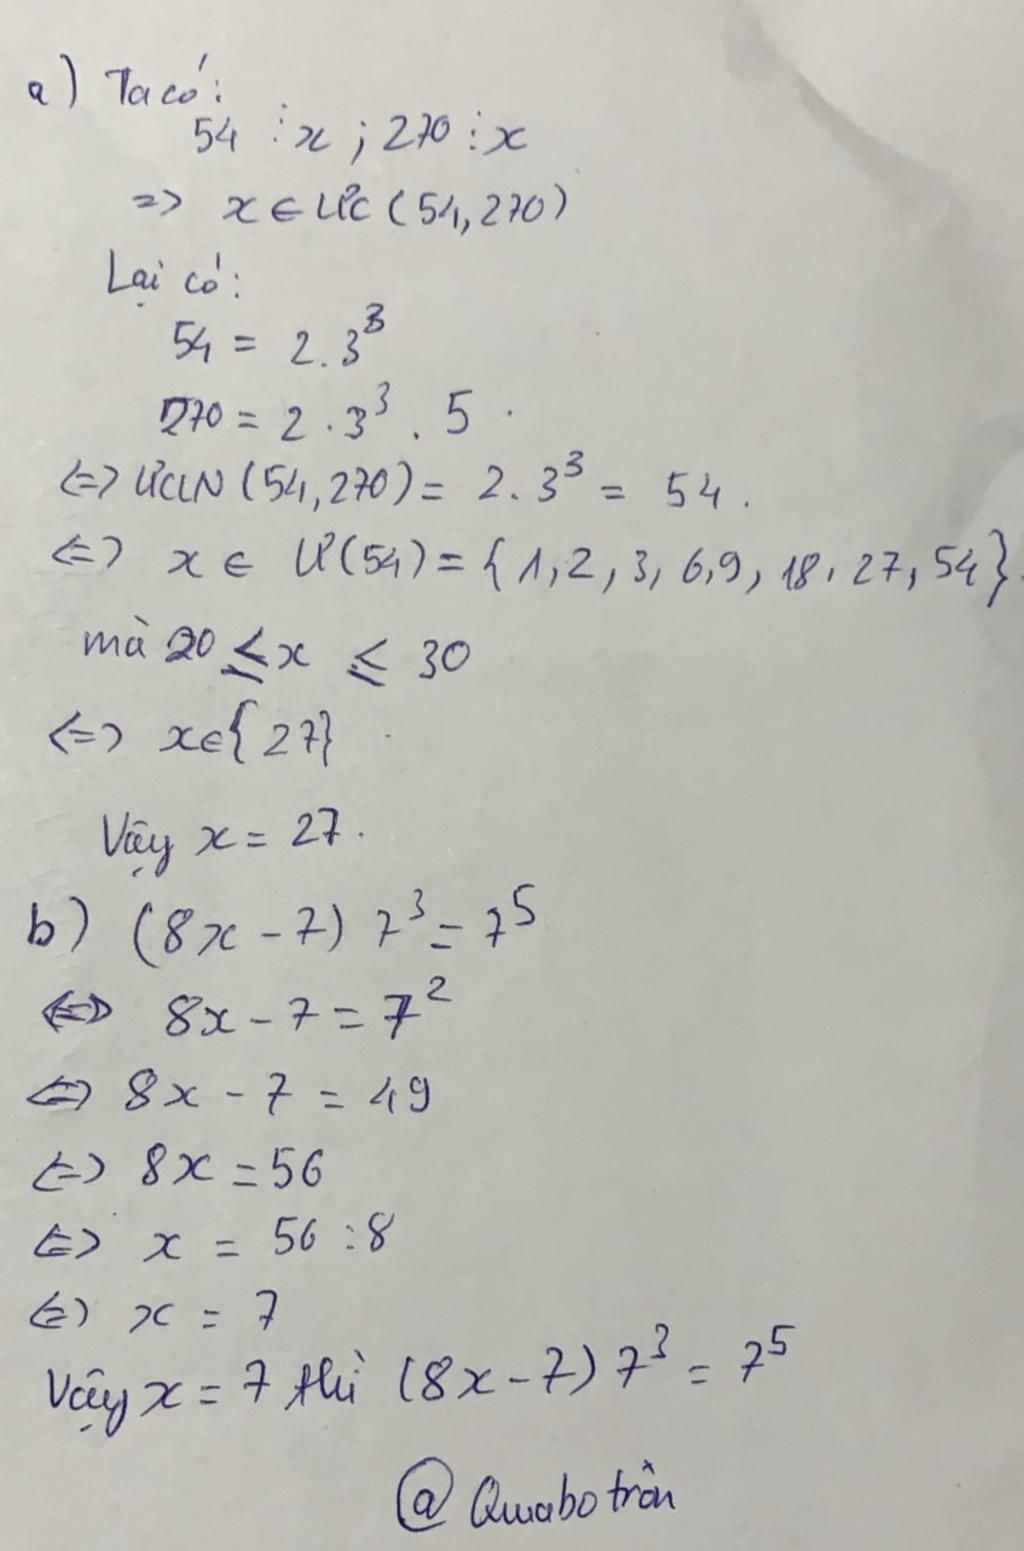 a) Ta có:
54 ⋮ x ; 270 ⋮ x
=> x ∈ ƯC (54, 270)
Lại có:
54 = 2.3³
270 = 2.3³.5.
<=> ƯCLN (54, 270) = 2.3³ = 54.
<=> x ∈ Ư(54) = {1, 2, 3, 6, 9, 18, 27, 54}.
mà 20 ≤ x ≤ 30
<=> x ∈ {27}.
Vậy x = 27.
b) (8x - 7) 7³ = 7⁵
<=> 8x - 7 = 7²
<=> 8x - 7 = 49
<=> 8x = 56
<=> x = 56 : 8
<=> x = 7
Vậy x = 7 thì (8x - 7) 7³ = 7⁵
@ Quabotrân